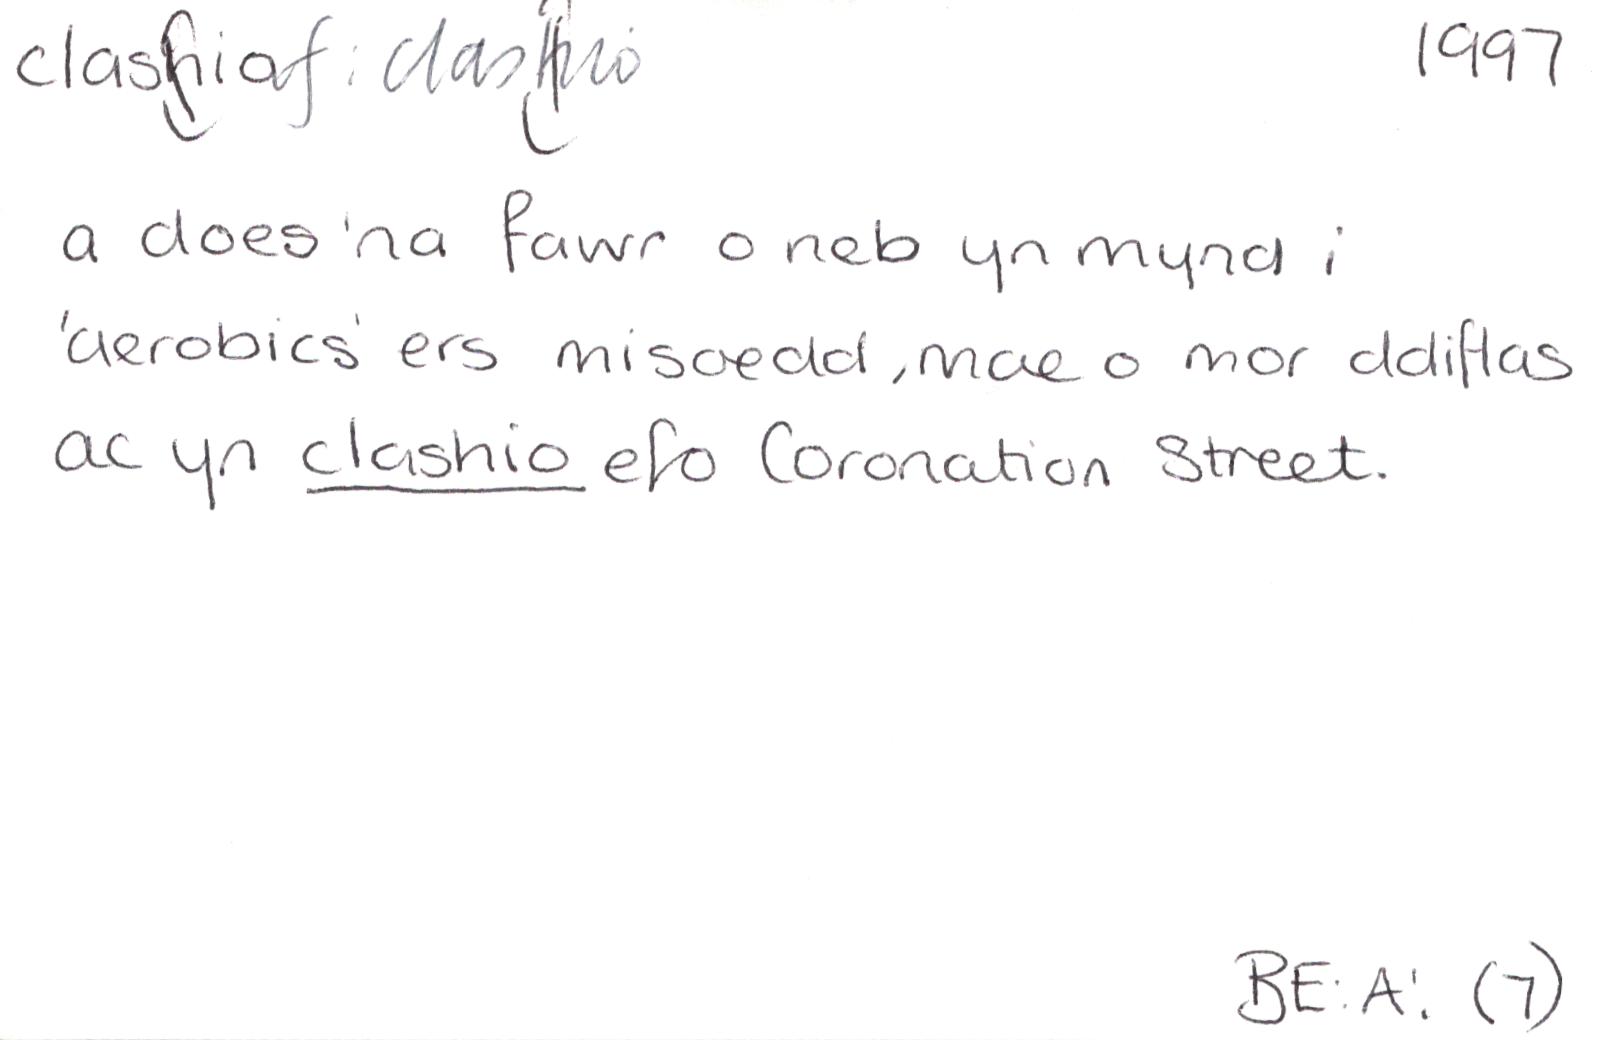 clashiaf: clashio 1997
a does 'na fawr o neb yn mynd i
'aerobics' ers misoedd, mae o mor ddiflas
ac yn clashio efo Coronation Street.
BE: A!. (7)